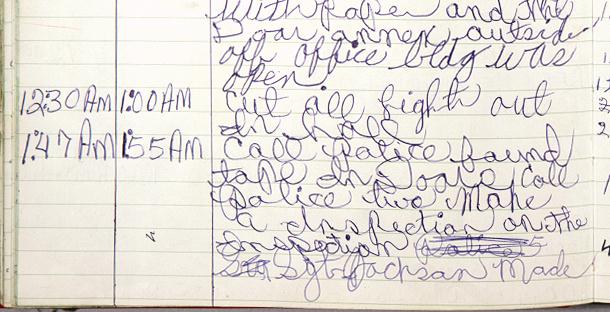 with Paper and the
Door annex outside
off office bldg was
open
12:30 AM 1:00 AM Cut all light out
In hall
1:47 AM 1:55 AM Call Police found
tape In Doore Call
Police two Make
a Inspection on the
Inspection
Sgt. Jackson Made